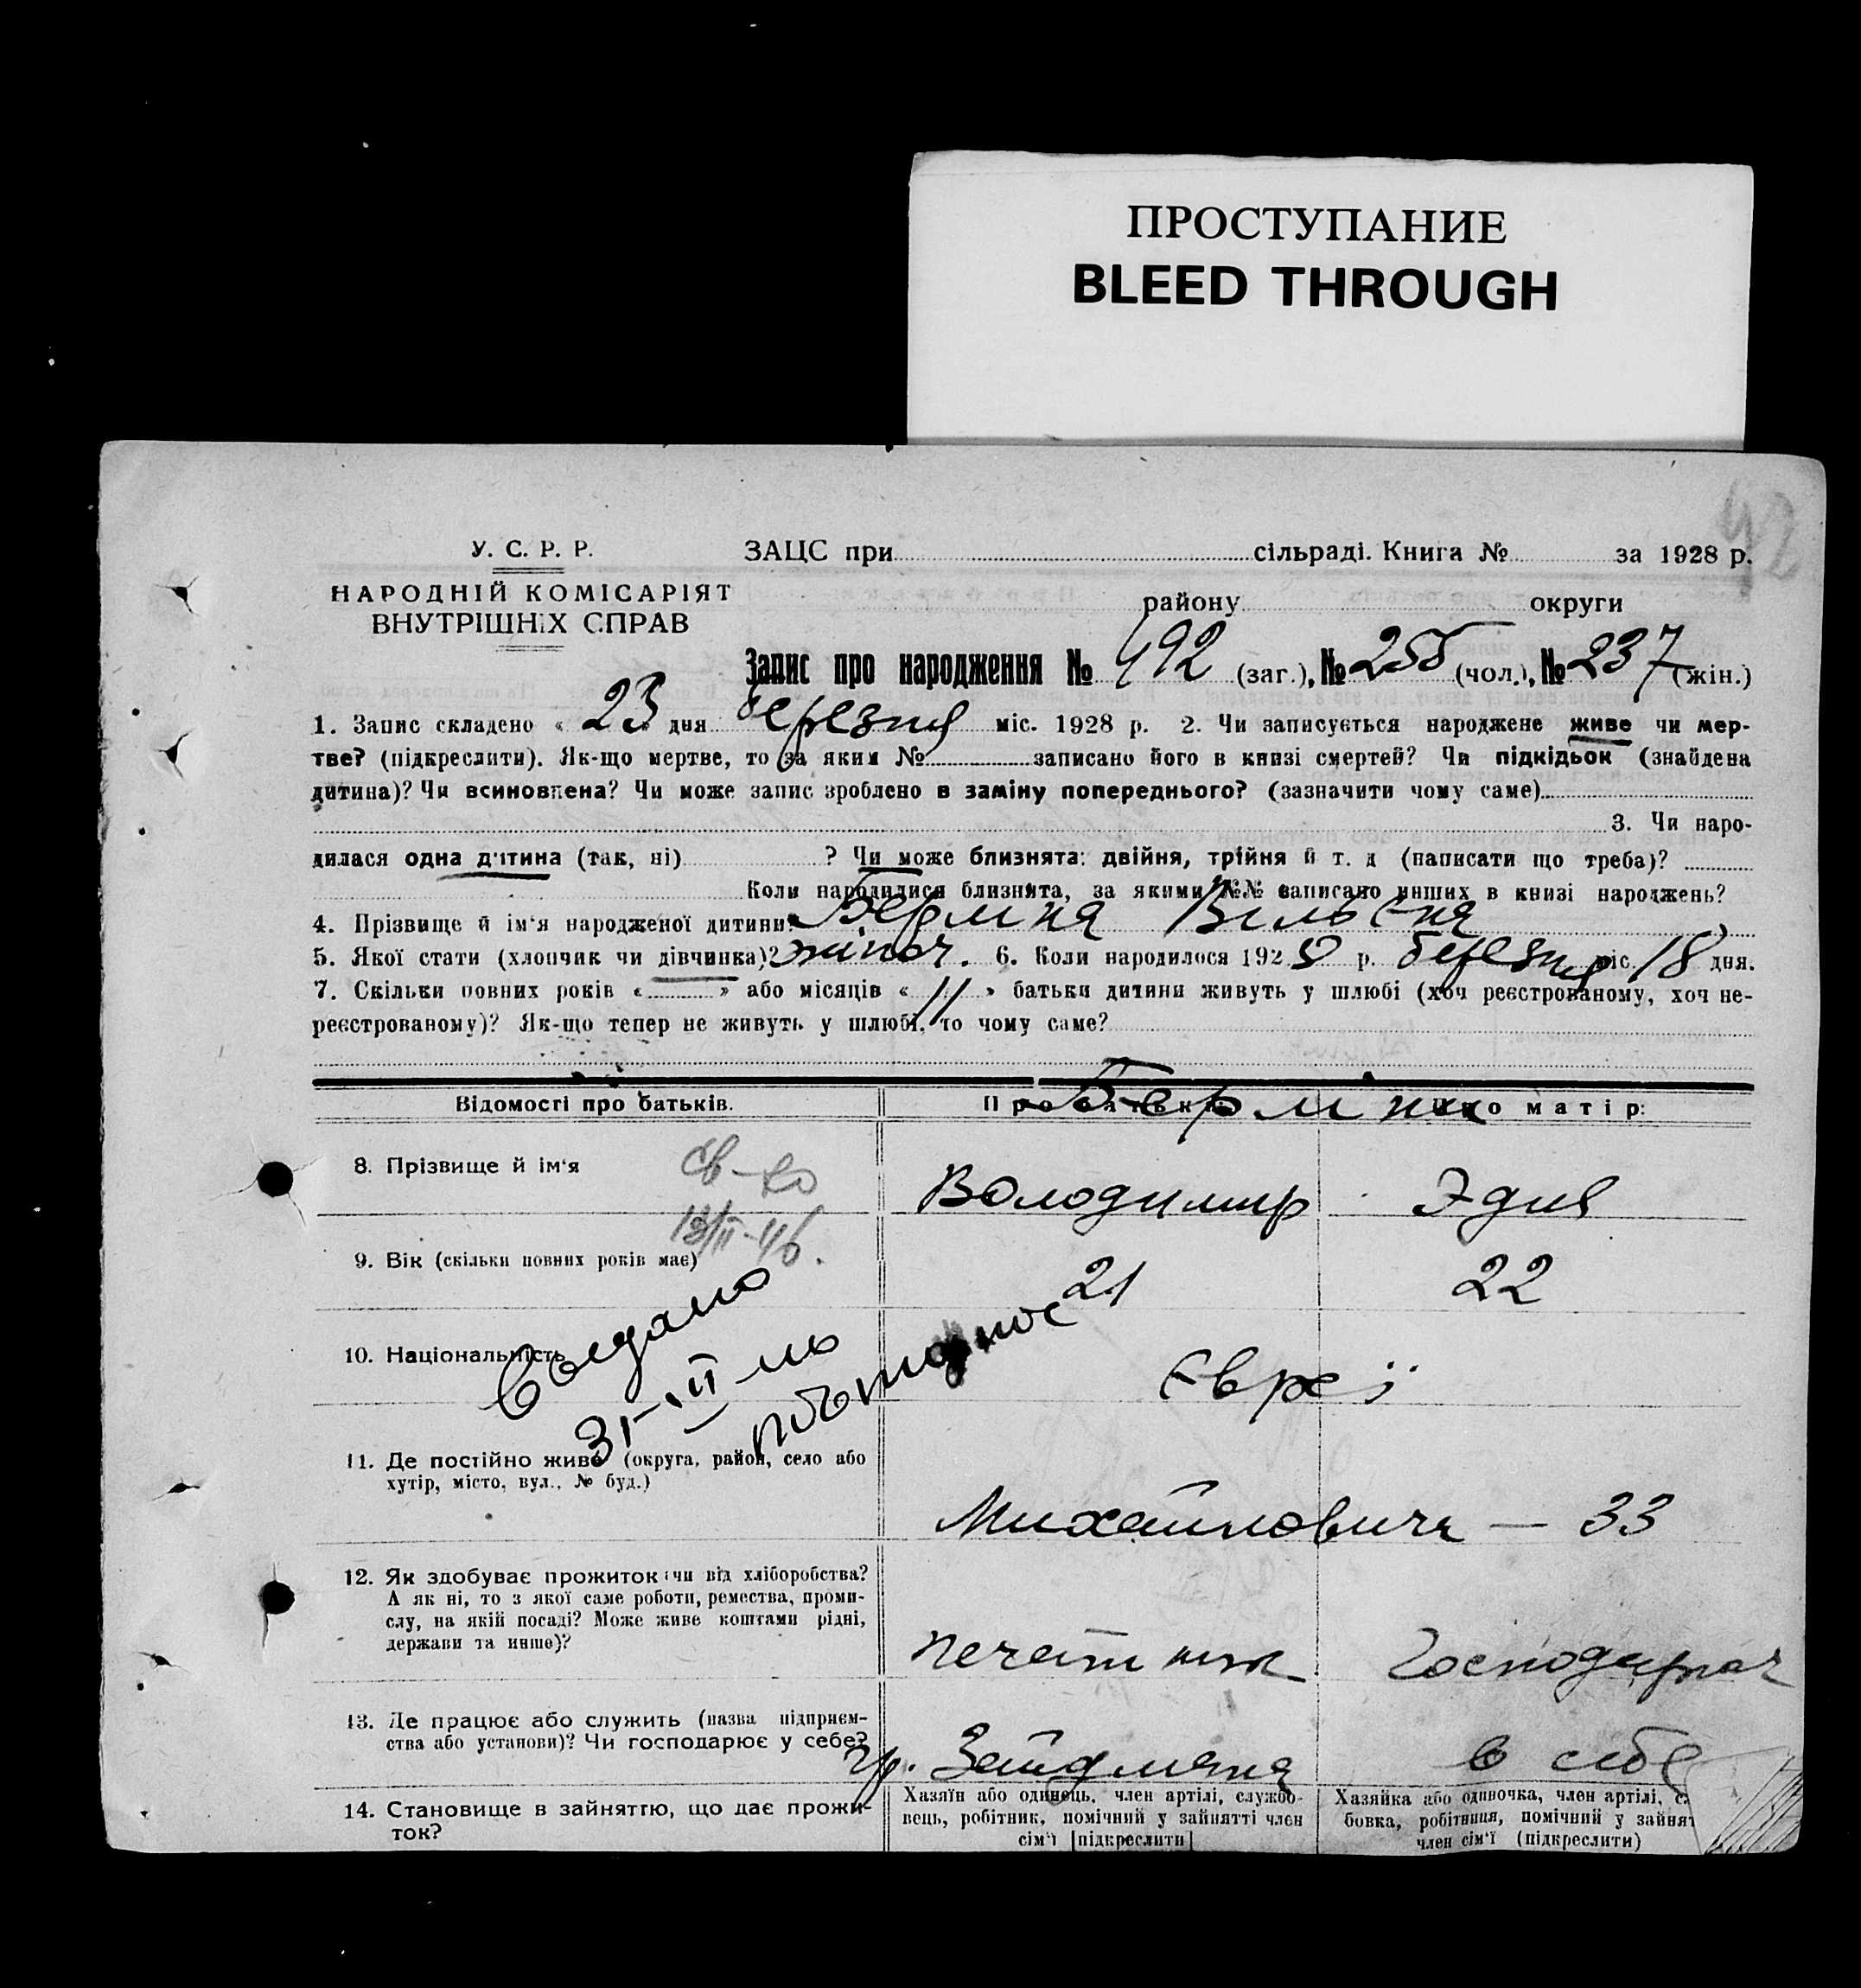 ПРОСТУПАНИЕ
BLEED THROUGH
У. С. Р. Р.
НАРОДНІЙ КОМІСАРІЯТ
ВНУТРІШНІХ СПРАВ
ЗАЦС при сільраді. Книга № за 1928 р.
району округи
Запис про народження № 492 (заг.), № 255 (чол.), № 237 (жін.)
1. Запис складено « 23 » дня березня міс. 1928 р. 2. Чи записується народжене живе чи мер-
тве? (підкреслити). Як-що мертве, то за яким № записано його в книзі смертей? Чи підкідьок (знайдена
дитина)? Чи всиновлена? Чи може запис зроблено в заміну попереднього? (зазначити чому саме)
3. Чи наро-
дилася одна дитина (так, ні) ? Чи може близнята: двійня, трійня й т. д (написати що треба)?
Коли народилися близнята, за якими №№ записано инших в книзі народжень?
4. Прізвище й ім'я народженої дитини: Берліна Вільєна
5. Якої стати (хлопчик чи дівчинка)? жіноч. 6. Коли народилося 1928 р. березня міс. 18 дня.
7. Скільки повних років « » або місяців « 11 » батьки дитини живуть у шлюбі (хоч реєстрованому, хоч не-
реєстрованому)? Як-що тепер не живуть у шлюбі, то чому саме?
Відомості про батьків. Про батька: Про матір:
8. Прізвище й ім'я
Володимир Эдия
9. Вік (скільки повних років має)
21 22
10. Національність
Євреї
11. Де постійно живе (округа, район, село або
хутір, місто, вул., № буд.)
Михайловича — 33
12. Як здобуває прожиток (чи від хліборобства?
А як ні, то з якої саме роботи, ремества, проми-
слу, на якій посаді? Може живе коштами рідні,
держави та инше)?
печатник Господарюч
13. Де працює або служить (назва підприєм-
ства або установи)? Чи господарює у себе?
гр. Зайдмана в себе
14. Становище в зайняттю, що дає прожи-
ток?
Хазяїн або одинець, член артілі, службо-
вець, робітник, помічний у зайнятті член
сім'ї [підкреслити]
Хазяйка або одиночка, член артілі,
бовка, робітниця, помічний у зайнят
член сім'ї (підкреслити)